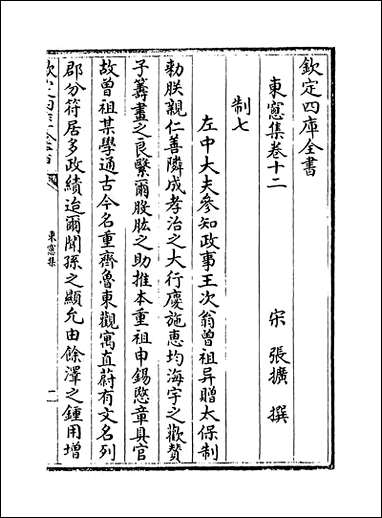 欽定四庫全書
東窻集卷十二
宋 張擴 撰
制七
左中大夫參知政事王次翁曾祖异贈太保制
勅朕親仁善隣成孝治之大行慶施惠均海宇之歡賛
子籌畫之良繄爾股肱之助推本重祖申錫愍章具官
故曾祖某學通古今名重齊魯東觀寓直蔚有文名列
郡分符居多政績迨爾聞孫之顯允由餘澤之鍾用增
東窻集
一